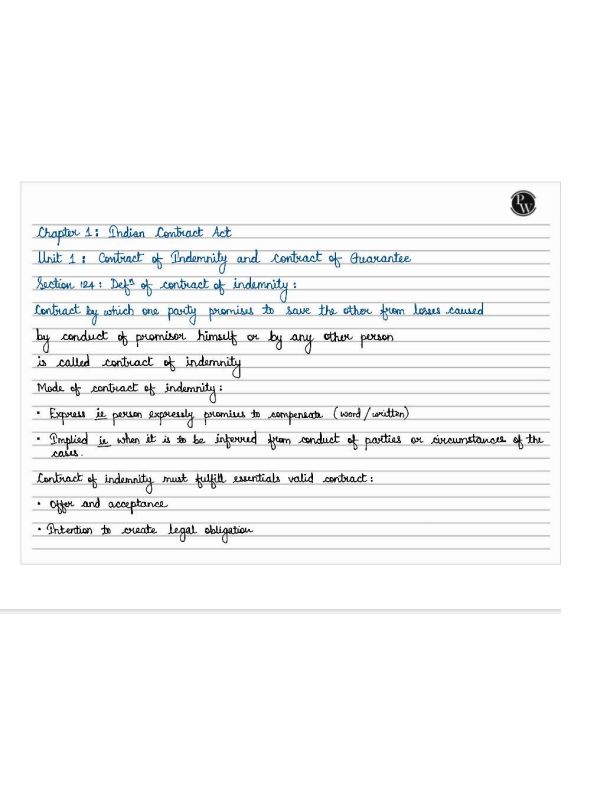 PW
Chapter 1: Indian Contract Act
Unit 1: Contract of Indemnity and Contract of Guarantee
Section 124: Defⁿ of contract of indemnity:
Contract by which one party promises to save the other from losses caused
by conduct of promisor himself or by any other person
is called contract of indemnity
Mode of contract of indemnity:
• Express ie person expressly promises to compensate (word/written)
• Implied ie when it is to be inferred from conduct of parties or circumstances of the
cases.
Contract of indemnity must fulfill essentials valid contract:
• Offer and acceptance
• Intention to create legal obligation